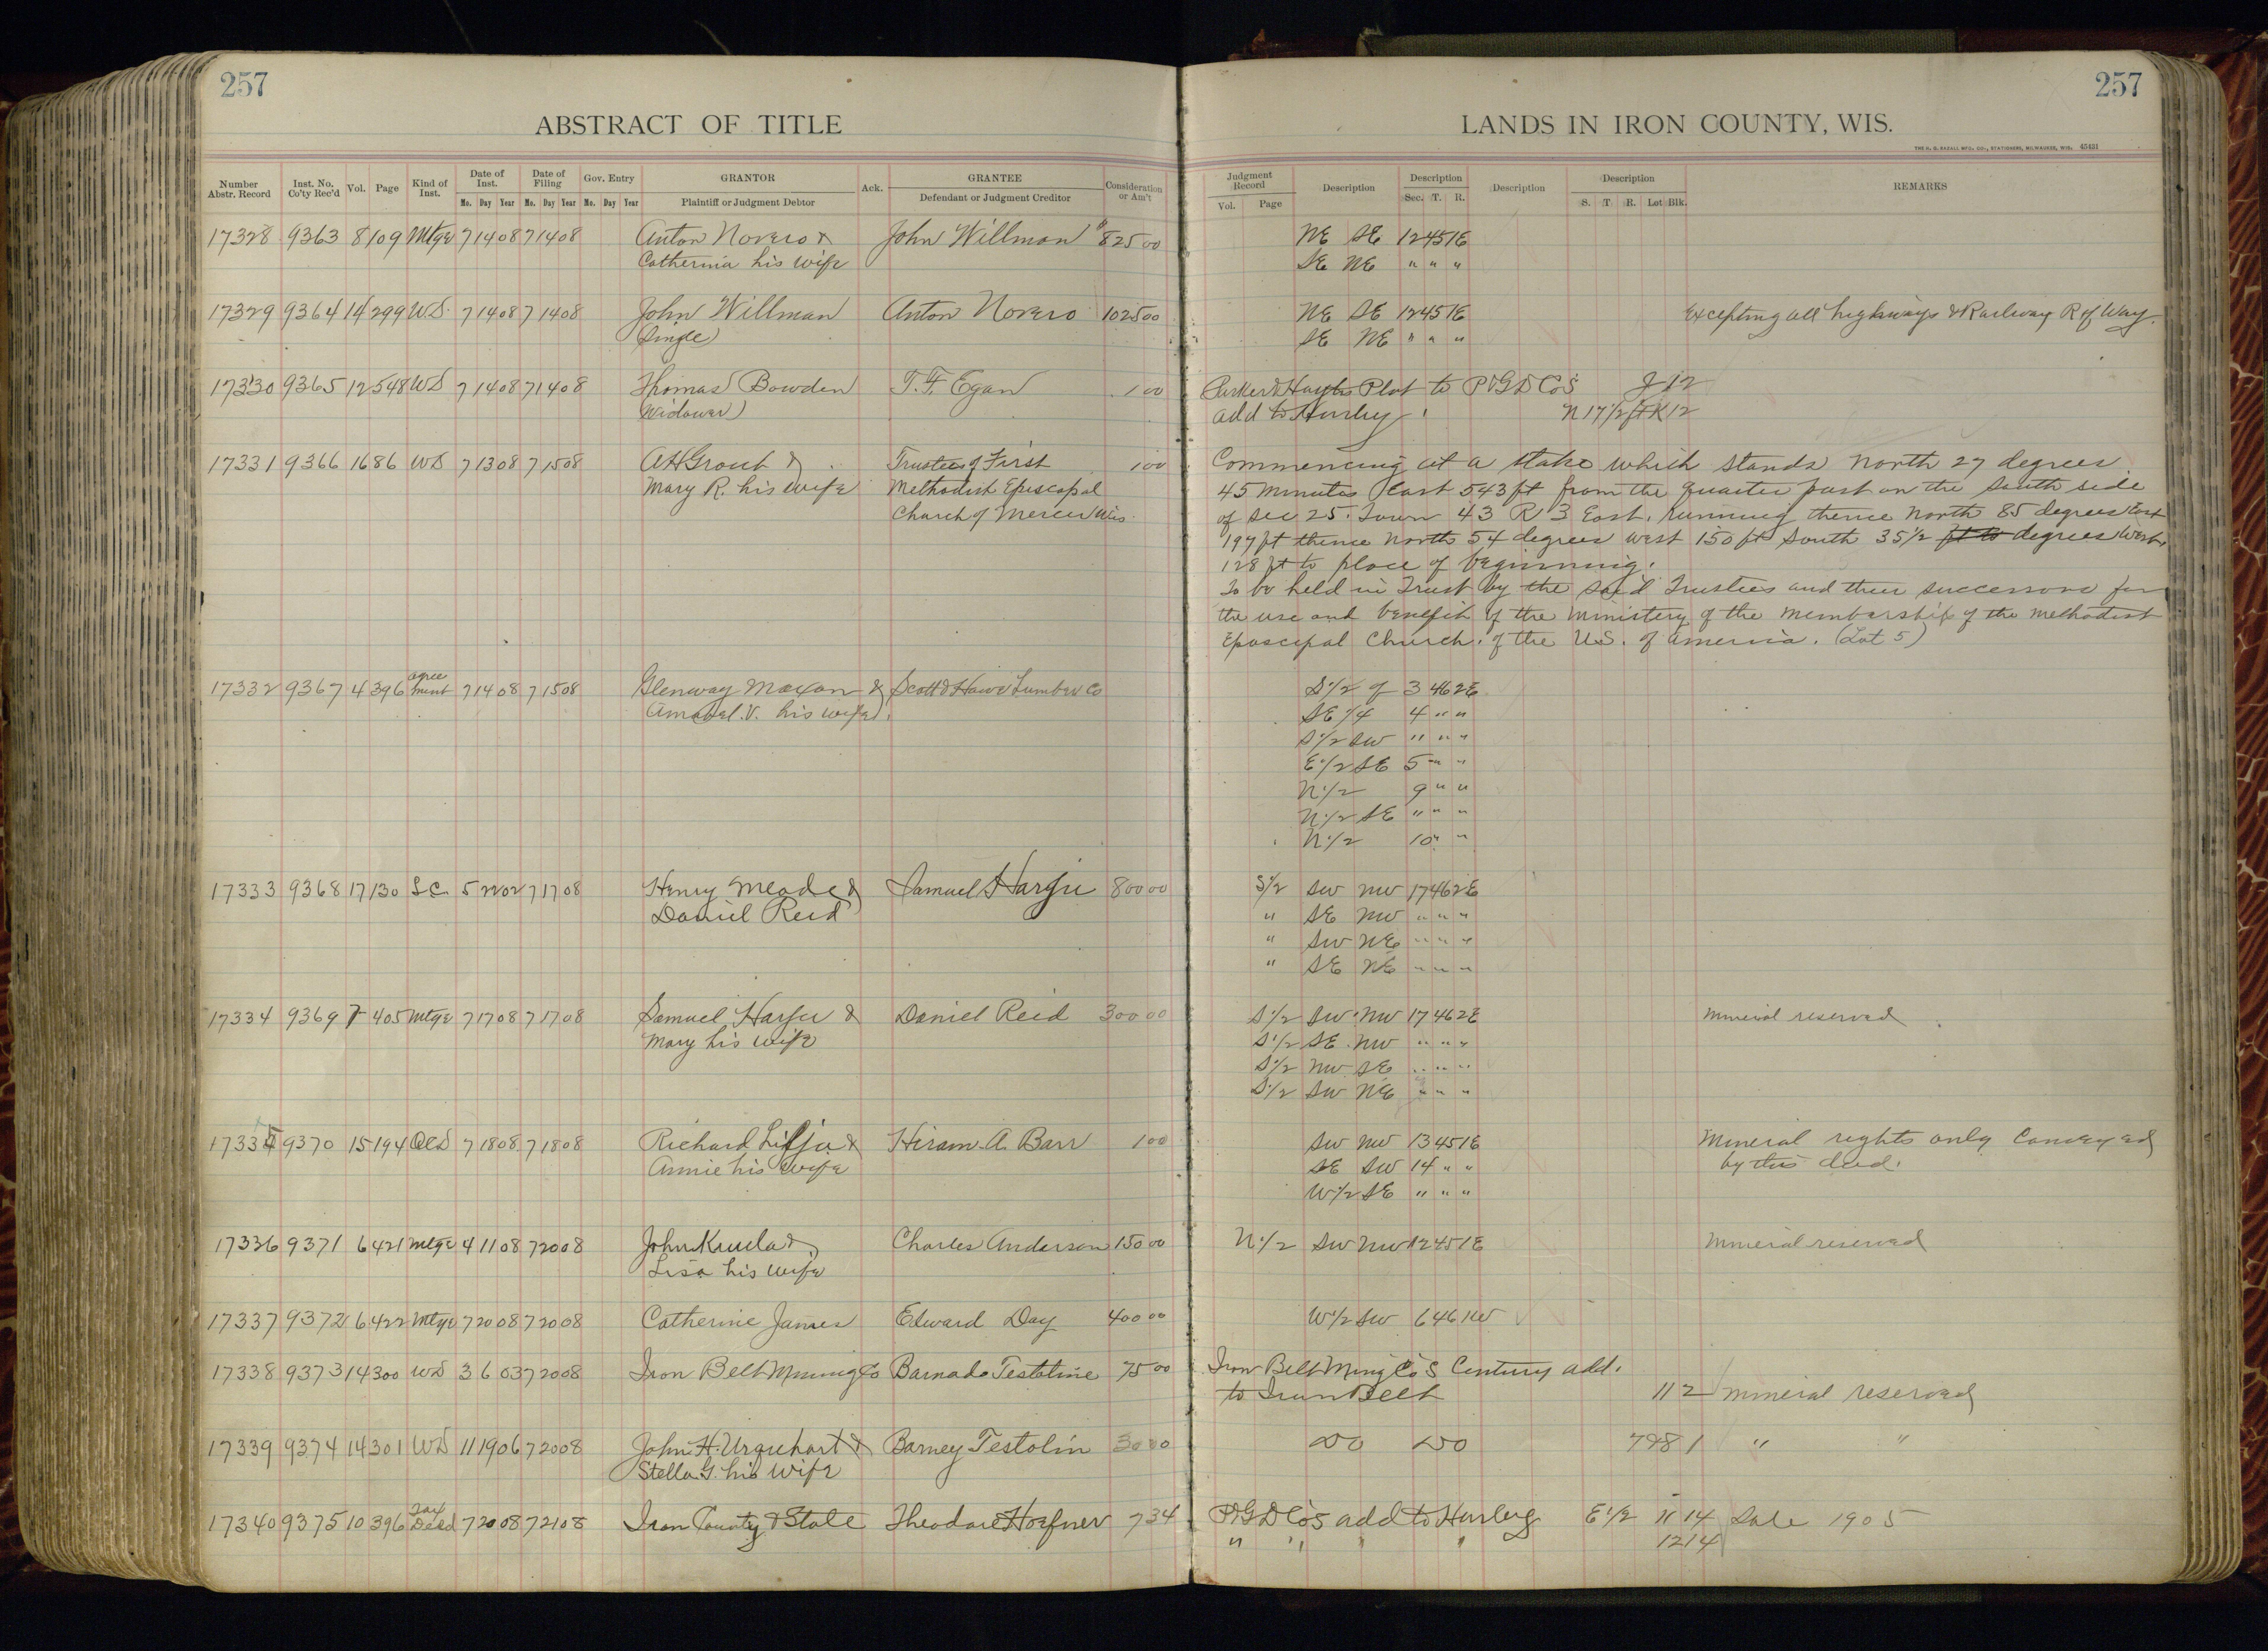 257
ABSTRACT OF TITLE
Number Abstr. Record Inst. No. Co'ty Rec'd Vol. Page Kind of Inst. Date of Inst. Mo. Day Year Date of Filing Mo. Day Year Gov. Entry Mo. Day Year GRANTOR Plaintiff or Judgment Debtor Ack. GRANTEE Defendant or Judgment Creditor Consideration or Am't
17328 9363 8 109 Mtge 7 14 08 7 14 08 Anton Novero & John Willman $825 00
Catherina his wife
17329 9364 14 299 WD 7 14 08 7 14 08 John Willman Anton Novero 1025 00
Single
17330 9365 12 548 WD 7 14 08 7 14 08 Thomas Bowden T. F. Egan 1 00
Widower
17331 9366 16 86 WD 7 13 08 7 15 08 A H Grout & Trustees of First 1 00
Mary R. his wife Methodist Episcopal
Church of Mercer Wis
17332 9367 4 396 agree ment 7 14 08 7 15 08 Glenway Maxon & Scott & Howe Lumber Co
Amabel. V. his wife
17333 9368 17 130 L C 5 22 02 7 17 08 Henry Meade & Samuel Harju 800 00
Daniel Reid
17334 9369 7 405 Mtge 7 17 08 7 17 08 Samuel Harju & Daniel Reid 300 00
Mary his wife
17335 9370 15 194 QCD 7 18 08 7 18 08 Richard Lilja & Hiram A. Barr 1 00
Annie his wife
17336 9371 6 421 Mtge 4 11 08 7 20 08 John & Charles Anderson 150 00
Lisa his wife
17337 9372 6 422 Mtge 7 20 08 7 20 08 Catherine James Edward Day 400 00
17338 9373 14 300 WD 3 6 03 7 20 08 Iron Belt Mining Co Barnado Testoline 75 00
17339 9374 14 301 WD 11 19 06 7 20 08 John H. Urquhart & Barney Testolin 30 00
Stella G. his wife
17340 9375 10 396 Tax Deed 7 20 08 7 21 08 Iron County & State Theodore Hoefner 7 34
257
LANDS IN IRON COUNTY, WIS.
THE H. G. RAZALL MFG. CO., STATIONERS, MILWAUKEE, WIS. 45421
Judgment Record Vol. Page Description Description Sec. T. R. Description Description S. T. R. Lot Blk. REMARKS
NE SE 12 45 1E
SE NE " " "
NE SE 12 45 1E Excepting all highways & Railway R of Way.
SE NE " " "
Parker & Hayes Plat to P&GD Co's J 12
add to Hurley N 17 1/2 ft K 12
Commencing at a stake which stands North 27 degrees
45 minutes East 543 ft from the quarter post on the South side
of Sec 25. Town 43 R 3 East. running thence North 85 degrees East
197 ft thence North 54 degrees west 150 ft South 35 1/2 ft to degrees West,
128 ft to place of beginning.
To be held in Trust by the said Trustees and their successors for
the use and benefit of the ministery of the membership of the Methodist
Episcopal Church. of the U.S. of America. (Lot 5)
S 1/2 of 3 46 2E
SE 1/4 4 " "
S 1/2 SW " " "
E 1/2 SE 5 " "
N 1/2 9 " "
N 1/2 SE " " "
N 1/2 10 " "
S 1/2 SW NW 17 46 2E
" SE NW " " "
" SW NE " " "
" SE NE " " "
S 1/2 SW NW 17 46 2E Mineral reserved
S 1/2 SE NW " " "
S 1/2 NW SE " " "
S 1/2 SW NE " " "
SW NW 13 45 1E Mineral rights only Conveyed
SE SW 14 " " by this deed.
W 1/2 SE " " "
N 1/2 SW NW 12 45 1E Mineral reserved
W 1/2 SW 6 46 1W
Iron Belt Ming Co's Century add.
to Iron Belt 11 2 Mineral reserved
do do 7&8 1 " "
P&GD Co's add to Hurley E 1/2 11 14 Sale 1905
" " " " 12 14